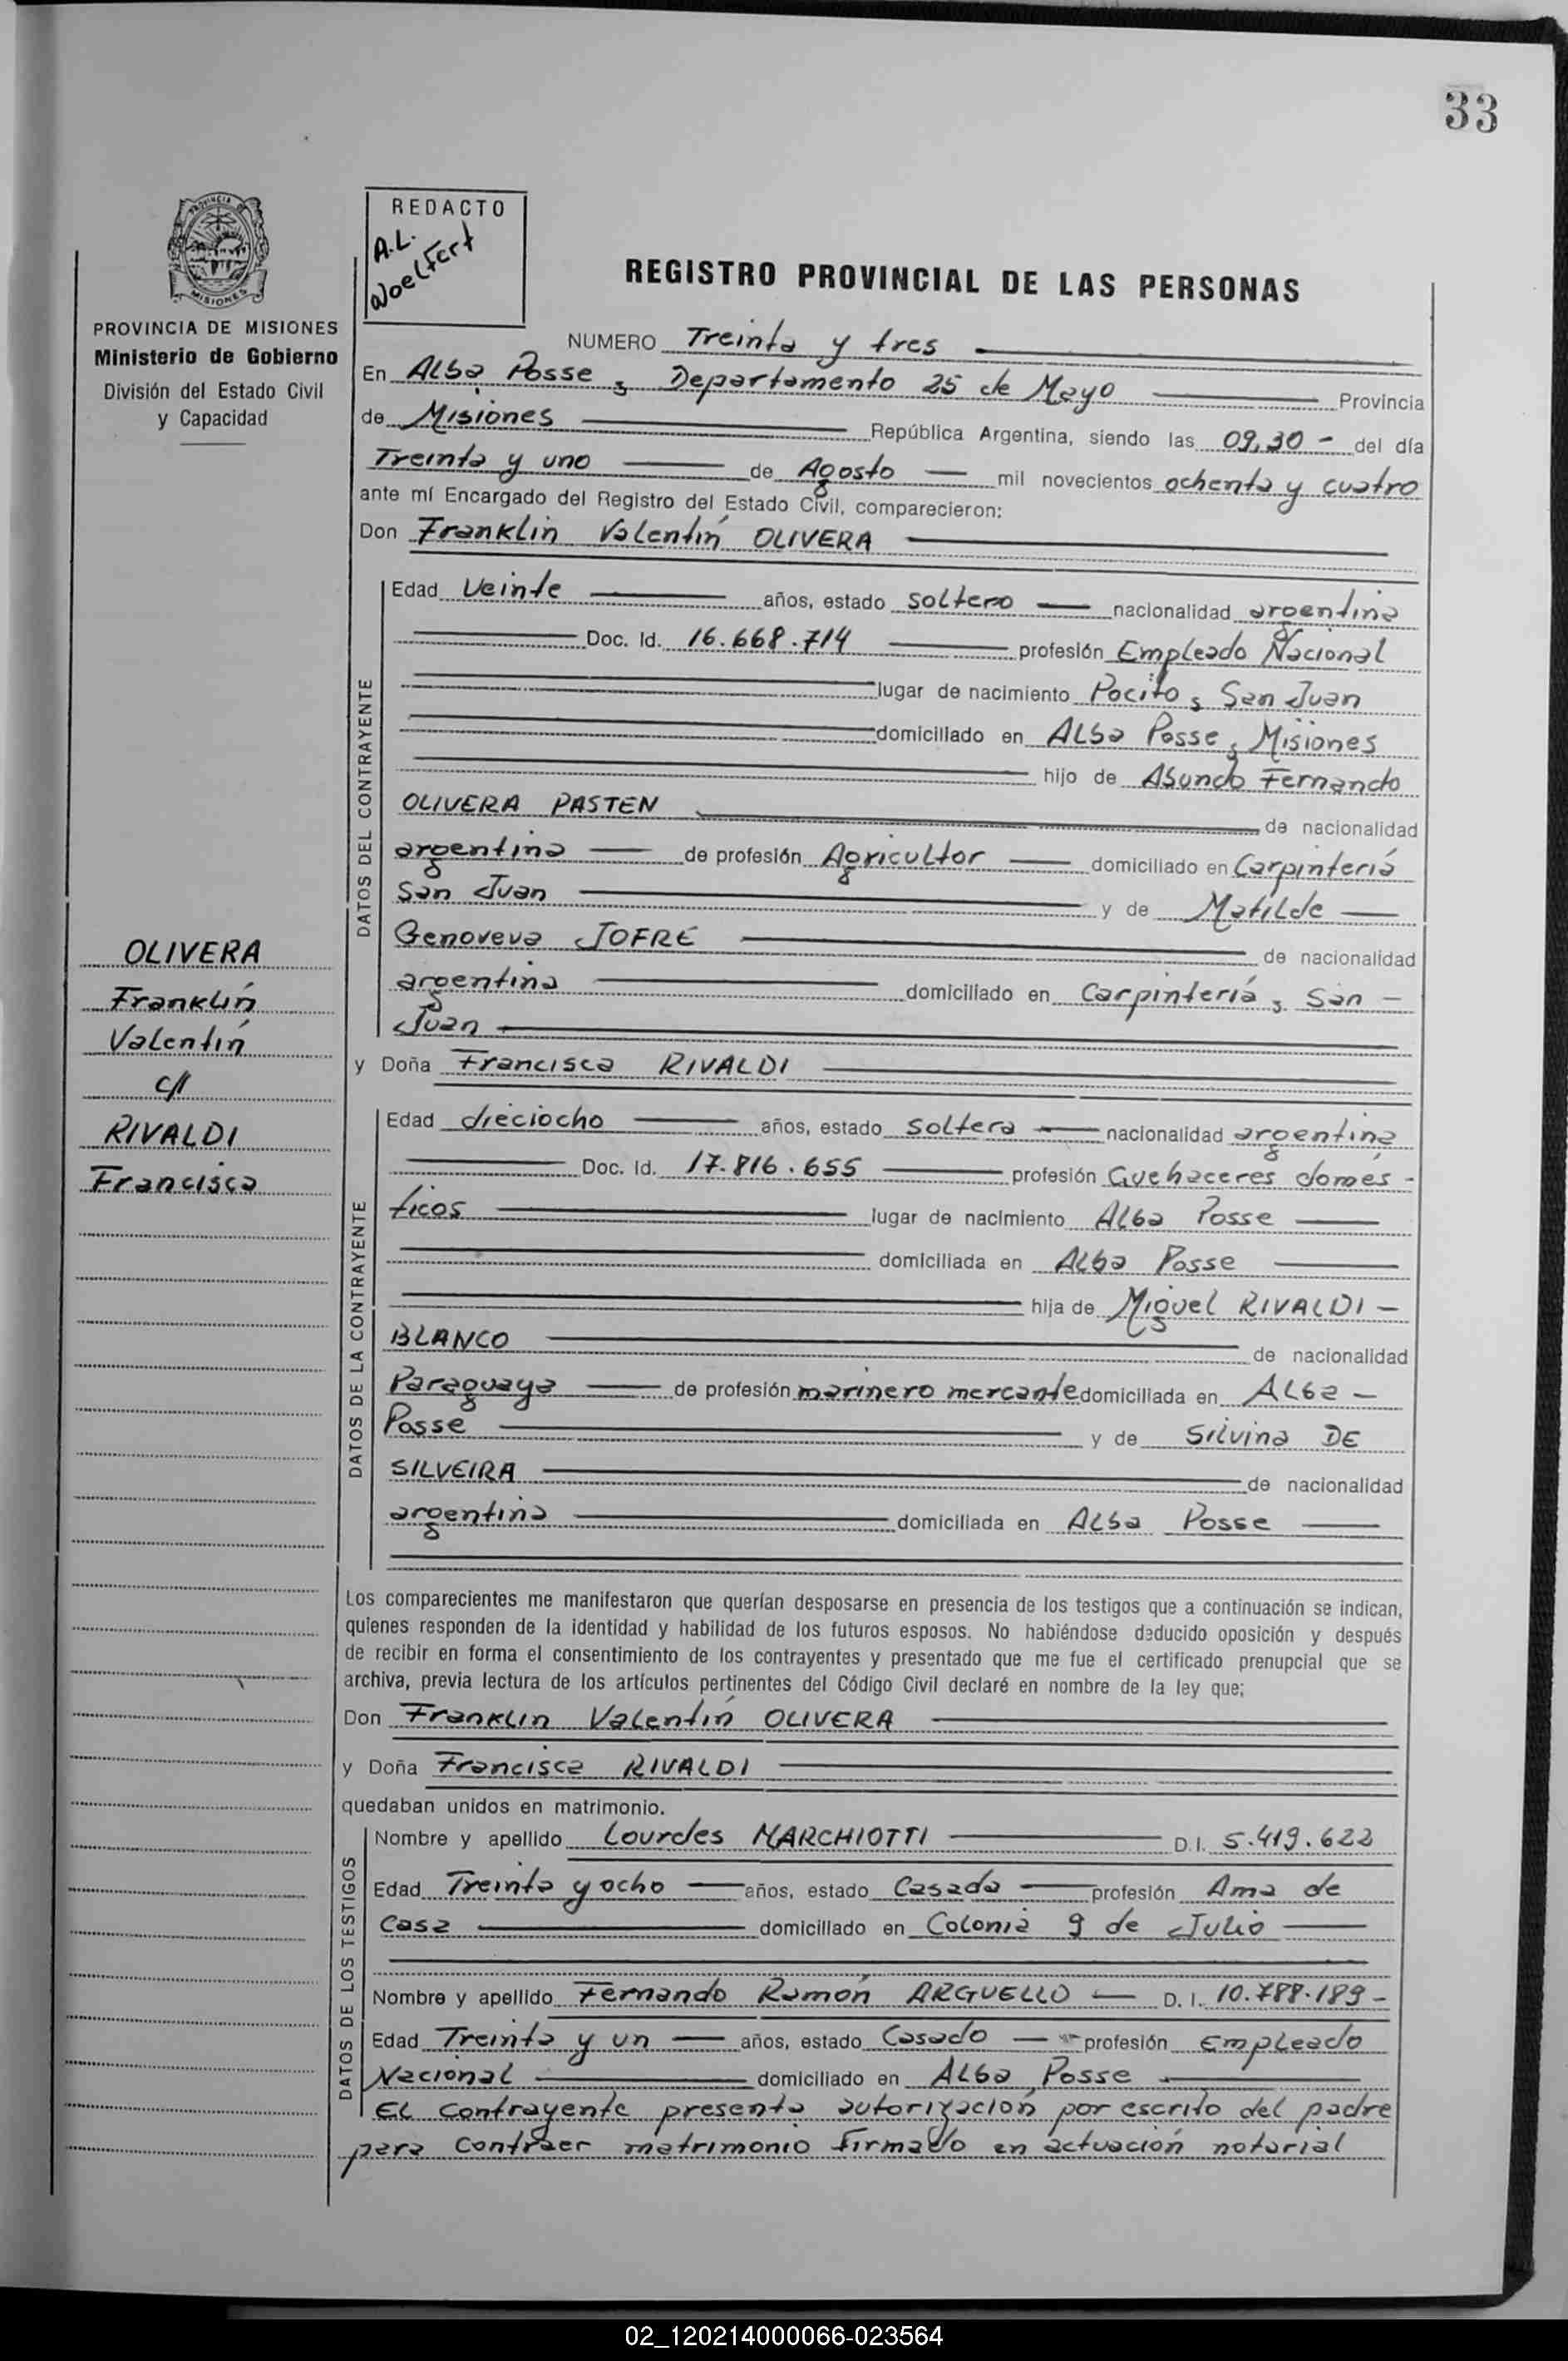 33
REDACTO
A.L.
Woelfert
PROVINCIA DE MISIONES
Ministerio de Gobierno
División del Estado Civil
y Capacidad
REGISTRO PROVINCIAL DE LAS PERSONAS
NUMERO Treinta y tres
En Alba Posse, Departamento 25 de Mayo Provincia
de Misiones República Argentina, siendo las 09,30 - del día
Treinta y uno de Agosto mil novecientos ochenta y cuatro
ante mí Encargado del Registro del Estado Civil, comparecieron:
Don Franklin Valentín OLIVERA
DATOS DEL CONTRAYENTE
Edad Veinte años, estado soltero nacionalidad argentina
Doc. Id. 16.668.714 profesión Empleado Nacional
lugar de nacimiento Pocito, San Juan
domiciliado en Alba Posse, Misiones
hijo de Asundo Fernando
OLIVERA PASTEN de nacionalidad
argentina de profesión Agricultor domiciliado en Carpintería
San Juan y de Matilde
Genoveva JOFRE de nacionalidad
argentina domiciliado en Carpintería, San -
Juan
y Doña Francisca RIVALDI
OLIVERA
Franklín
Valentín
c/
RIVALDI
Francisca
DATOS DE LA CONTRAYENTE
Edad dieciocho años, estado soltera nacionalidad argentina
Doc. Id. 17.816.655 profesión Quehaceres domés-
ticos lugar de nacimiento Alba Posse
domiciliada en Alba Posse
hija de Miguel RIVALDI -
BLANCO de nacionalidad
Paraguaya de profesión marinero mercante domiciliada en Alba -
Posse y de Silvina DE
SILVEIRA de nacionalidad
argentina domiciliada en Alba Posse
Los comparecientes me manifestaron que querían desposarse en presencia de los testigos que a continuación se indican,
quienes responden de la identidad y habilidad de los futuros esposos. No habiéndose deducido oposición y después
de recibir en forma el consentimiento de los contrayentes y presentado que me fue el certificado prenupcial que se
archiva, previa lectura de los artículos pertinentes del Código Civil declaré en nombre de la ley que;
Don Franklin Valentín OLIVERA
y Doña Francisca RIVALDI
quedaban unidos en matrimonio.
DATOS DE LOS TESTIGOS
Nombre y apellido Lourdes MARCHIOTTI D.I. 5.419.622
Edad Treinta y ocho años, estado Casada profesión Ama de
Casa domiciliado en Colonia 9 de Julio
Nombre y apellido Fernando Ramón ARGUELLO D.I. 10.788.189 -
Edad Treinta y un años, estado Casado profesión Empleado
Nacional domiciliado en Alba Posse
El contrayente presenta autorización por escrito del padre
para contraer matrimonio firmado en actuación notarial
02_120214000066-023564